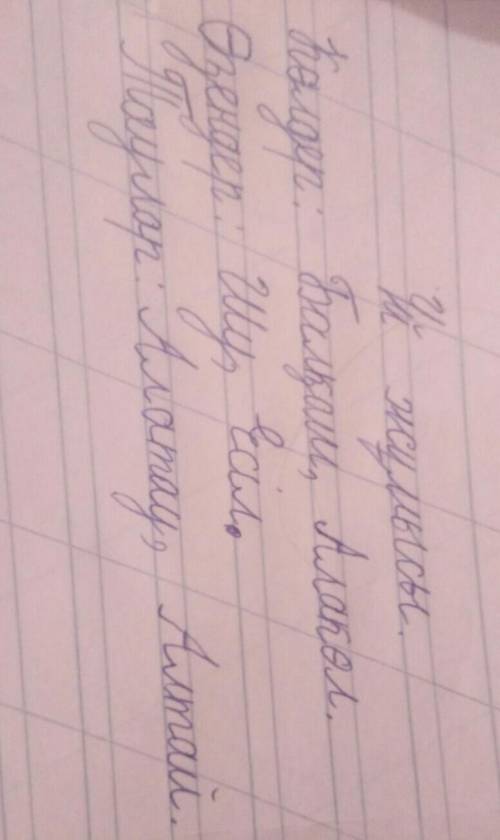 Үй жұмысы.
Көлдер: Балқаш, Алакөл.
Өзендер: Шу, Есіл.
Таулар: Алатау, Алтай.